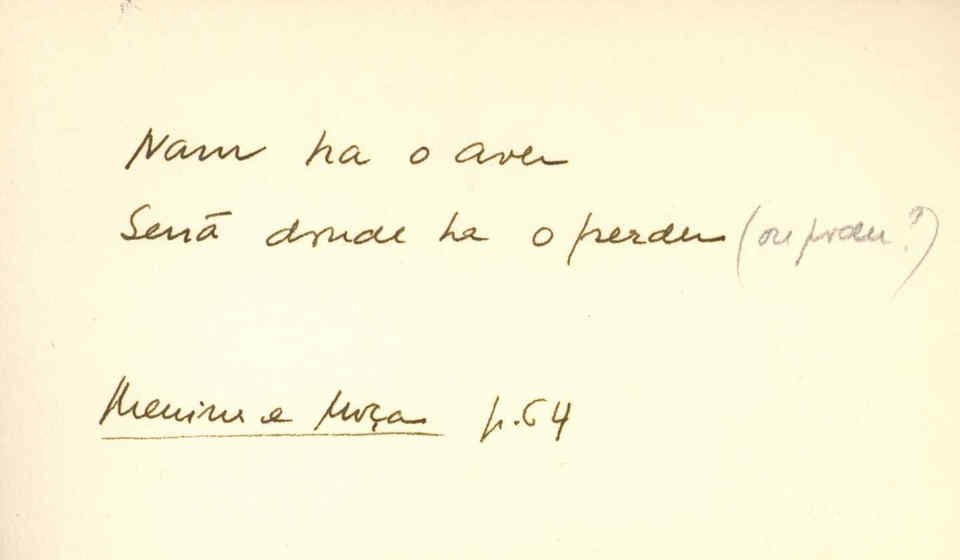 Nam ha o aver
Senã donde ha o perder (ou poder?)
Menina e Moça p. 54